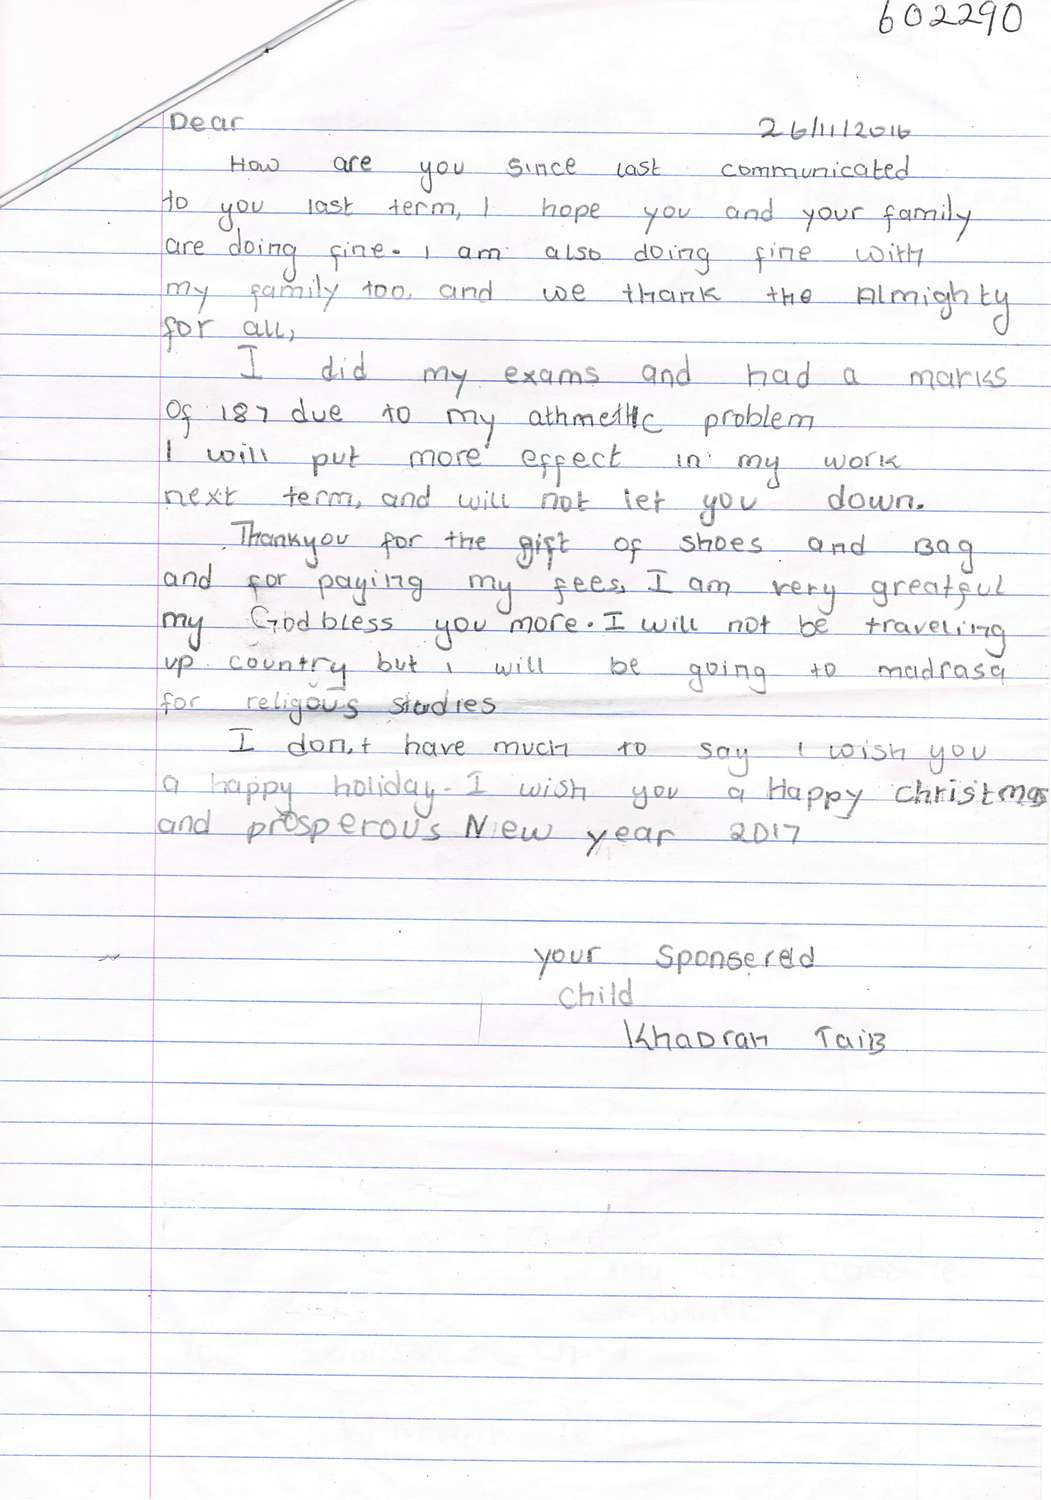 602290
Dear 26/11/2016
How are you since last communicated
to you last term, I hope you and your family
are doing fine. I am also doing fine with
my family too. and we thank the Almighty
for all,
I did my exams and had a marks
Of 187 due to my athmettic problem
I will put more effect in my work
next term, and will not let you down.
Thankyou for the gift of shoes and Bag
and for paying my fees, I am very greatful
my God bless you more. I will not be traveling
up country but i will be going to madrasa
for religous studies
I don,t have much to say I wish you
a happy holiday. I wish you a Happy Christmas
and prosperous New year 2017
your Sponsered
child
Khadrah Taib